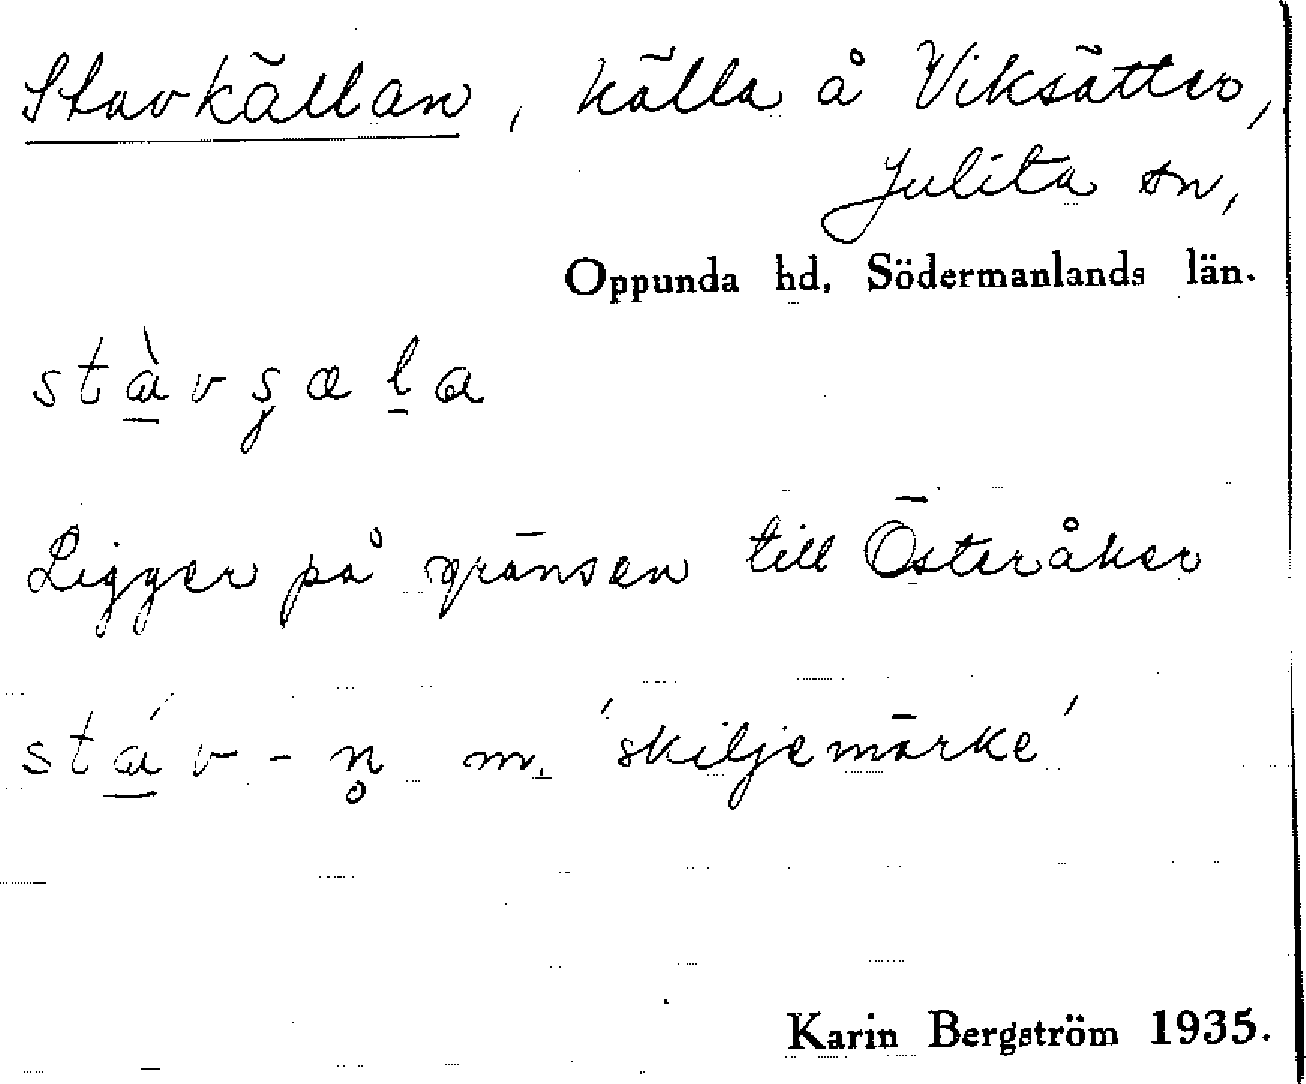 Stavkällan, källa å Viksätter,
Julita sn,
Oppunda hd, Södermanlands län.
stàvʂæla
Ligger på gränsen till Österåker
stáv-n̥ m. 'skiljemärke'
Karin Bergström 1935.